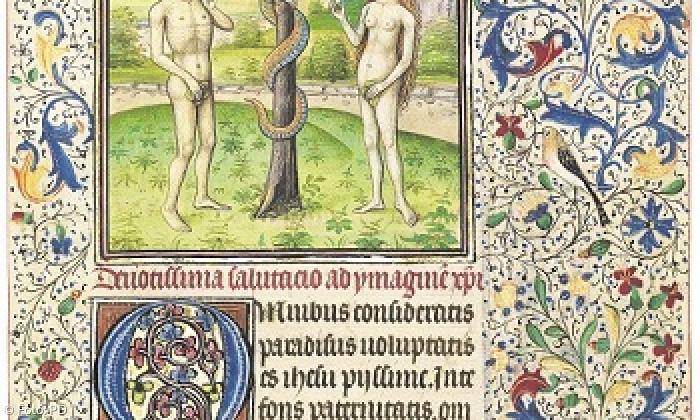 Deuotissima salutacio ad ymaginē xpi
OMnibus consideratis
paradisus uoluptatis
es ihesu pijssime. In te
fons paternitatis. om
© Foto: PD